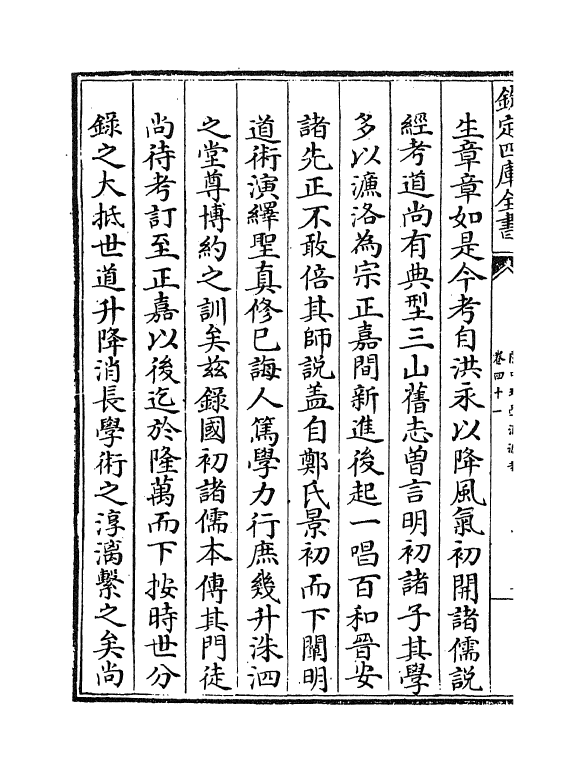 欽定四庫全書
卷四十一
生章章如是今考自洪永以降風氣初開諸儒説
經考道尚有典型三山舊志曽言明初諸子其學
多以濂洛為宗正嘉間新進後起一唱百和晉安
諸先正不敢倍其師説葢自鄭氏景初而下闡明
道術演繹聖真修已誨人篤學力行庶幾升洙泗
之堂尊博約之訓矣兹錄國初諸儒本傳其門徒
尚待考訂至正嘉以後迄於隆萬而下按時世分
錄之大抵世道升降消長學術之淳漓繫之矣尚